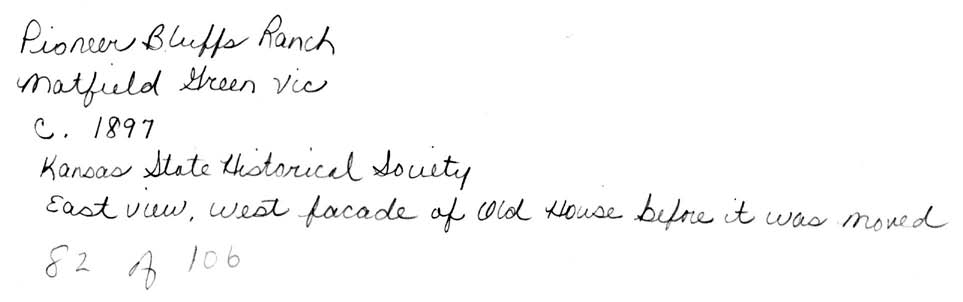 Pioneer Bluffs Ranch
Matfield Green Vic
C. 1897
Kansas State Historical Society
East view, west facade of Old House before it was moved
82 of 106